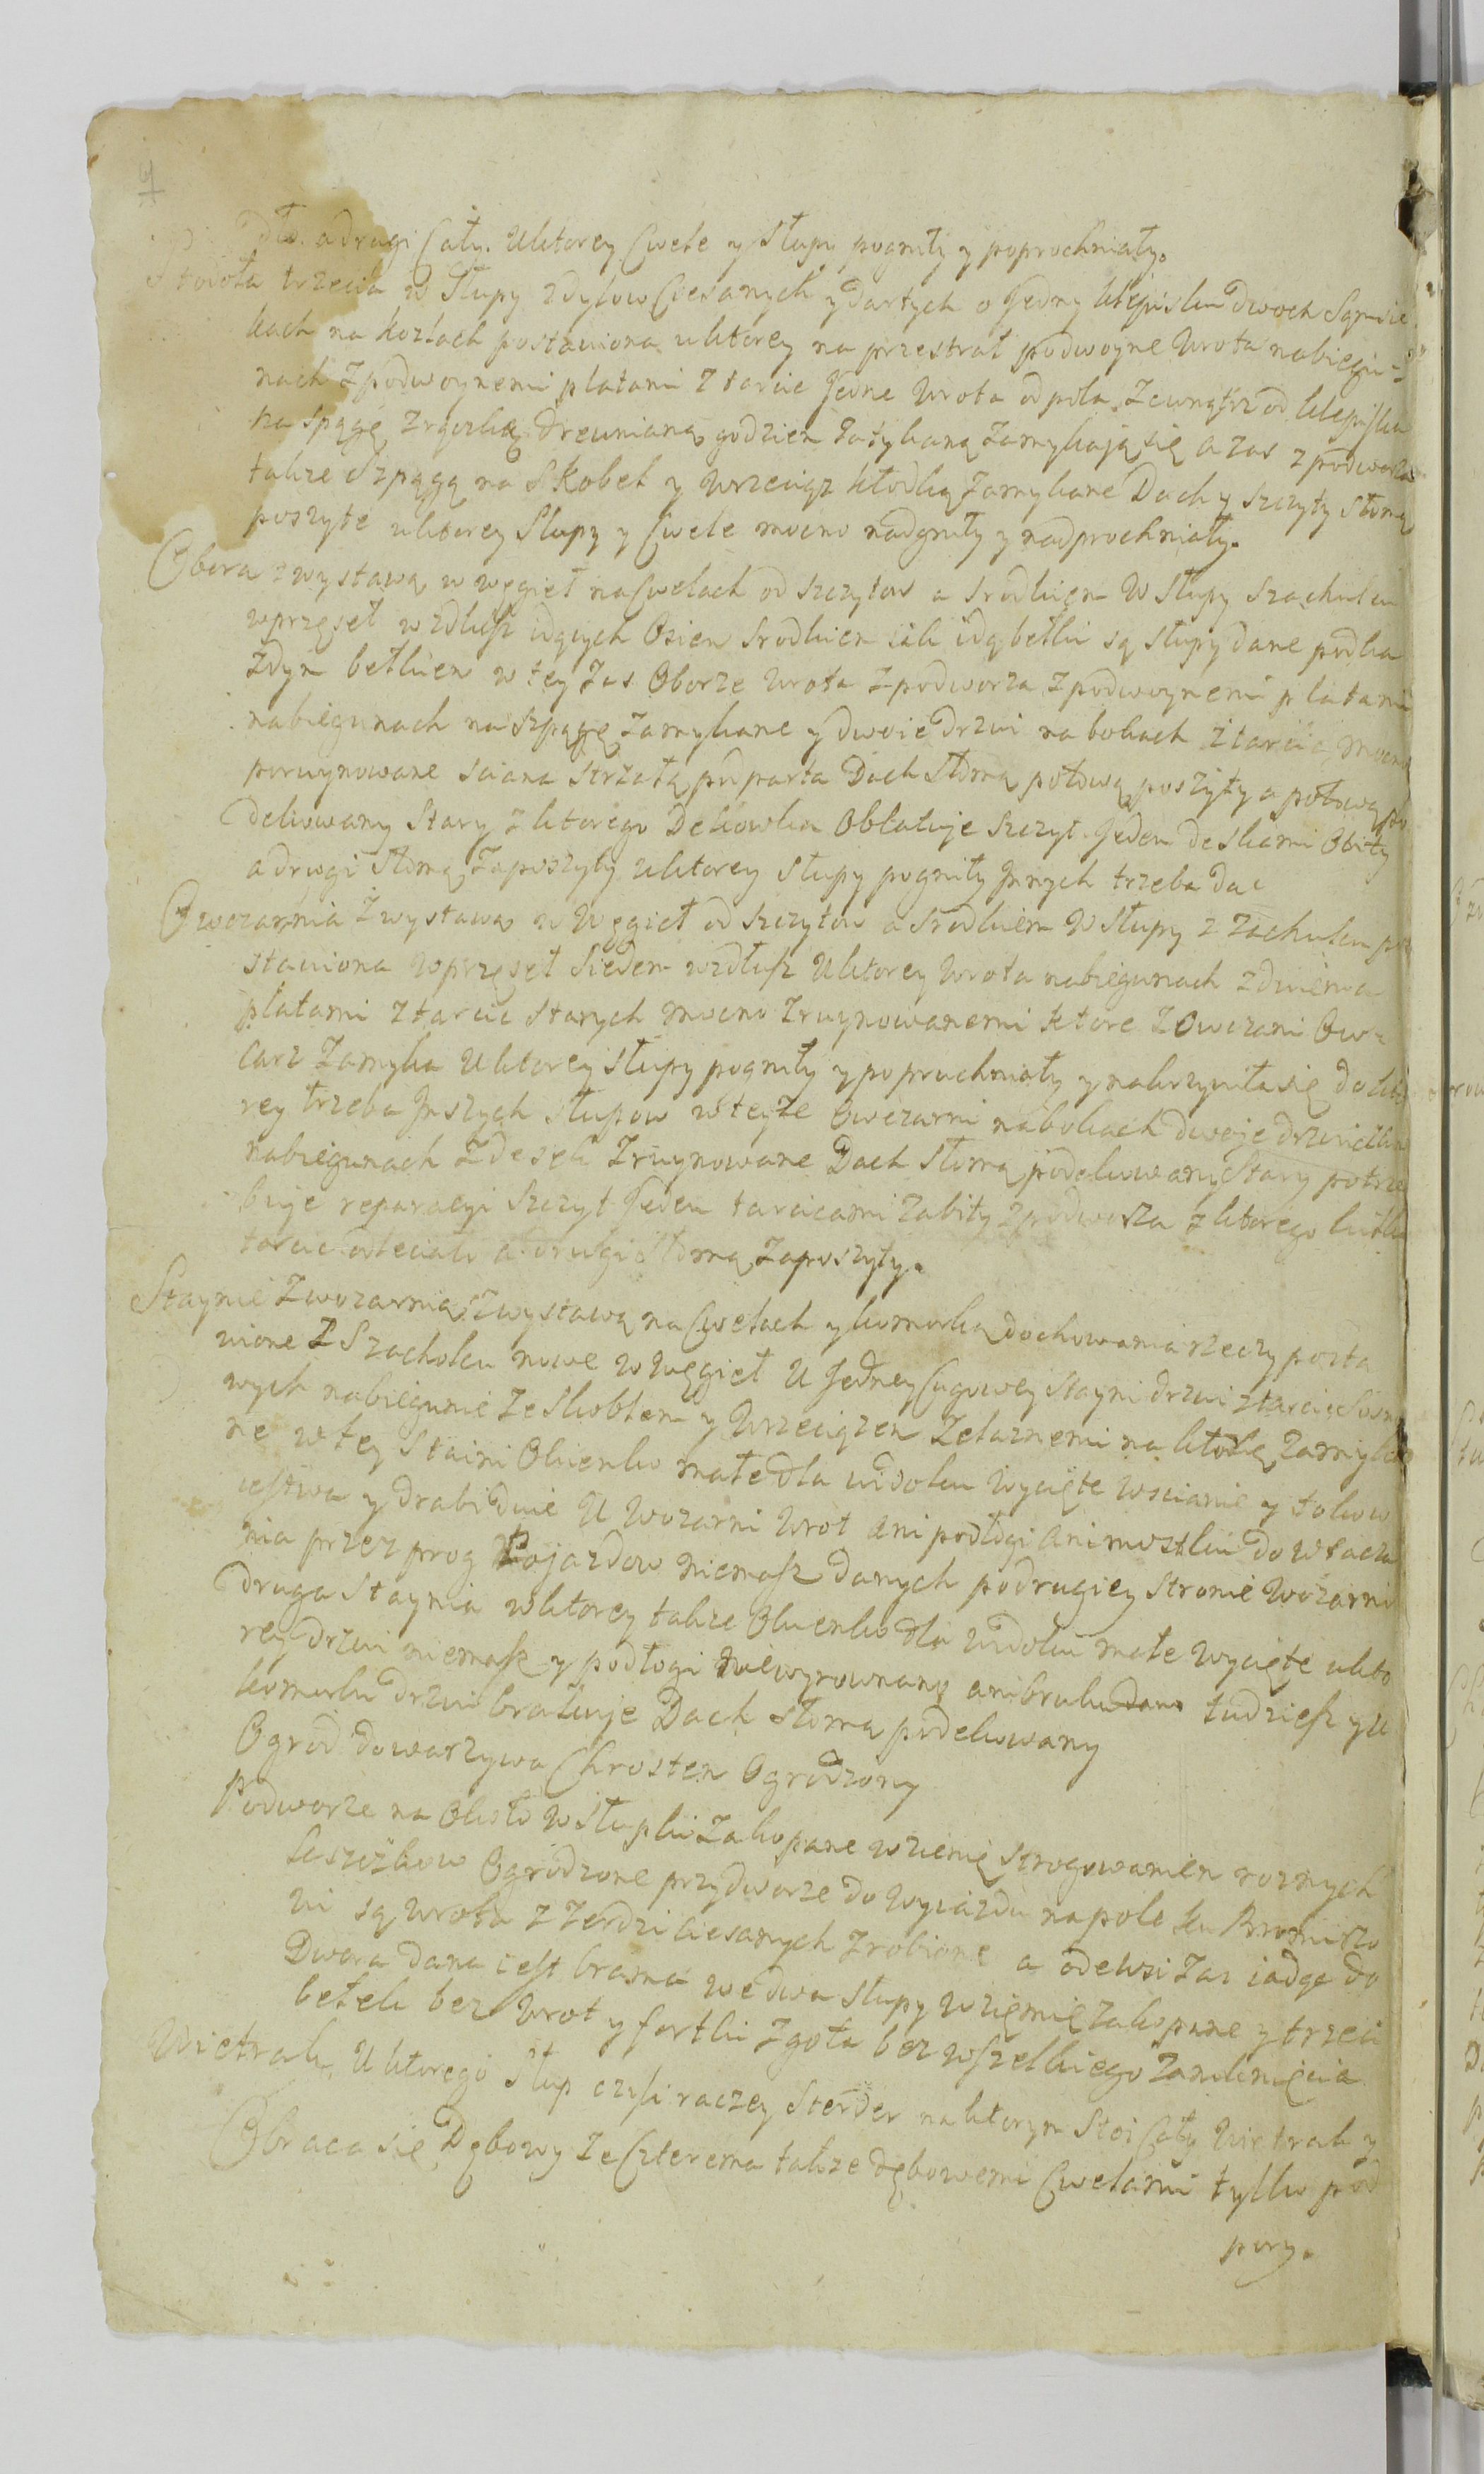 dło. a drugi Cały. Uktorey Cwele y Słupy pogniły y poprochniały.
Stodoła trzecia w Słupy zdylow Ciesanych y dartych o Jedny klepisku dwoch Sąsie
kach na kozłach postawiona uktorey na przestrał podwoyne Wrota nabiegu=
nach z podwoynemi płatami z tarcic Jedne Wrota od pola zewnątrz od klepiska
na spągę z rączką drewnianą godziem zatykaną zamykają się a zas z podworza
takze Szpągą na Skobel y Wrzeciąz kłodką zamykane Dach y szczyty słomą
poszyte uktorey Słupy y Cwele mocno nadgniły y nadprochniały.
Obora z wystawą w węgieł na Cwelach od szczytow a srodkiem W Słupy Szachulcu
wprzęseł wzdłusz idących Osiem srodkiem ida belki są słupy dane podka
zdym belkiem w tey zas Oborze Wrota z podworza z podwoynemi płatami
nabiegunach na szpągę zamykane y dwoie drzwi na bokach z tarcic mocno
poruynowane sciana strzałą podparta Dach Słomą połową poszyty a połową po
dekowany Stary z ktorego Dekowka Oblatuje Szczyt Jeden deskami Obity
a drugi Słomą zaposzyty uktorey Słupy pogniły Innych trzeba dac
Owczarnia z wystawą w Węgieł od szczytow a srodkiem W Słupy z zachulcu po
stawiona wprzęseł Siedem wzdłusz Uktorey Wrota nabiegunach z dwiema
płatami z tarcic starych mocno zruynowanemi ktore z Owczarni Ow=
czarz zamyka Uktorey Słupy pogniły y popruchniały y nakrzywiła się do kto
rey trzeba Inszych słupow wteyze Owczarni nabokach dwoje drzwiczkow
nabiegunach z desek zruynowane Dach Słomą podekowany Stary potrze
buje reparacyi Szczyt Jeden tarcicami zabity z podworza z ktorego kilka
tarcic odleciało a drugi Słomą zaposzyty.
Staynie z wozarnią z wystawą na Cwelach y komorką dochowania rzeczy posta
wione z Szacholcu nowe w węgieł U Jedney Cugowey Stayni drzwi z tarcic Sosno
wych nabiegunie ze Skoblem y Wrzeciązem zelaznemi na kłotkę zamyka
ne w tey Staini Okienko małe dla widoku wycięte wscianie y zołwow
iestwa y drabi dwie U Wozarni Wrot ani podłogi ani mostku do wtacza
nia przez prog Pojazdow niemasz danych podrugiey stronie Wozarni
druga Staynia wktorey takze Okienko dla widoku małe wycięte ukto
rey drzwi niemasz y podłogi niewyrownano ani bruku dano tudziesz y u
komorki drzwi brakuje Dach słomą podekowany
Ogrod do warzywa Chrostem Ogrodzony
Podworze na Około w Słupki zakopane wziemię strogowaniem roznych
laszczkow Ogrodzone przydworze do wyiazdu napole ku
wi są wrota z zerdzi ciesanych zrobione a odewsi zas iadąc do
Dwora dana iest brama we dwa słupy wziemię zakopane y trzeci
belek bez Wrot y fortki zgoła bez wszelkiego zamknięcia
Wietrak, Uktorego Słup czyli raczey Sterder naktorym Stoi Cały Wietrak y
Obraca się Dębowy ze Czterema takze dębowemi Cwelami tylko pod
pory.